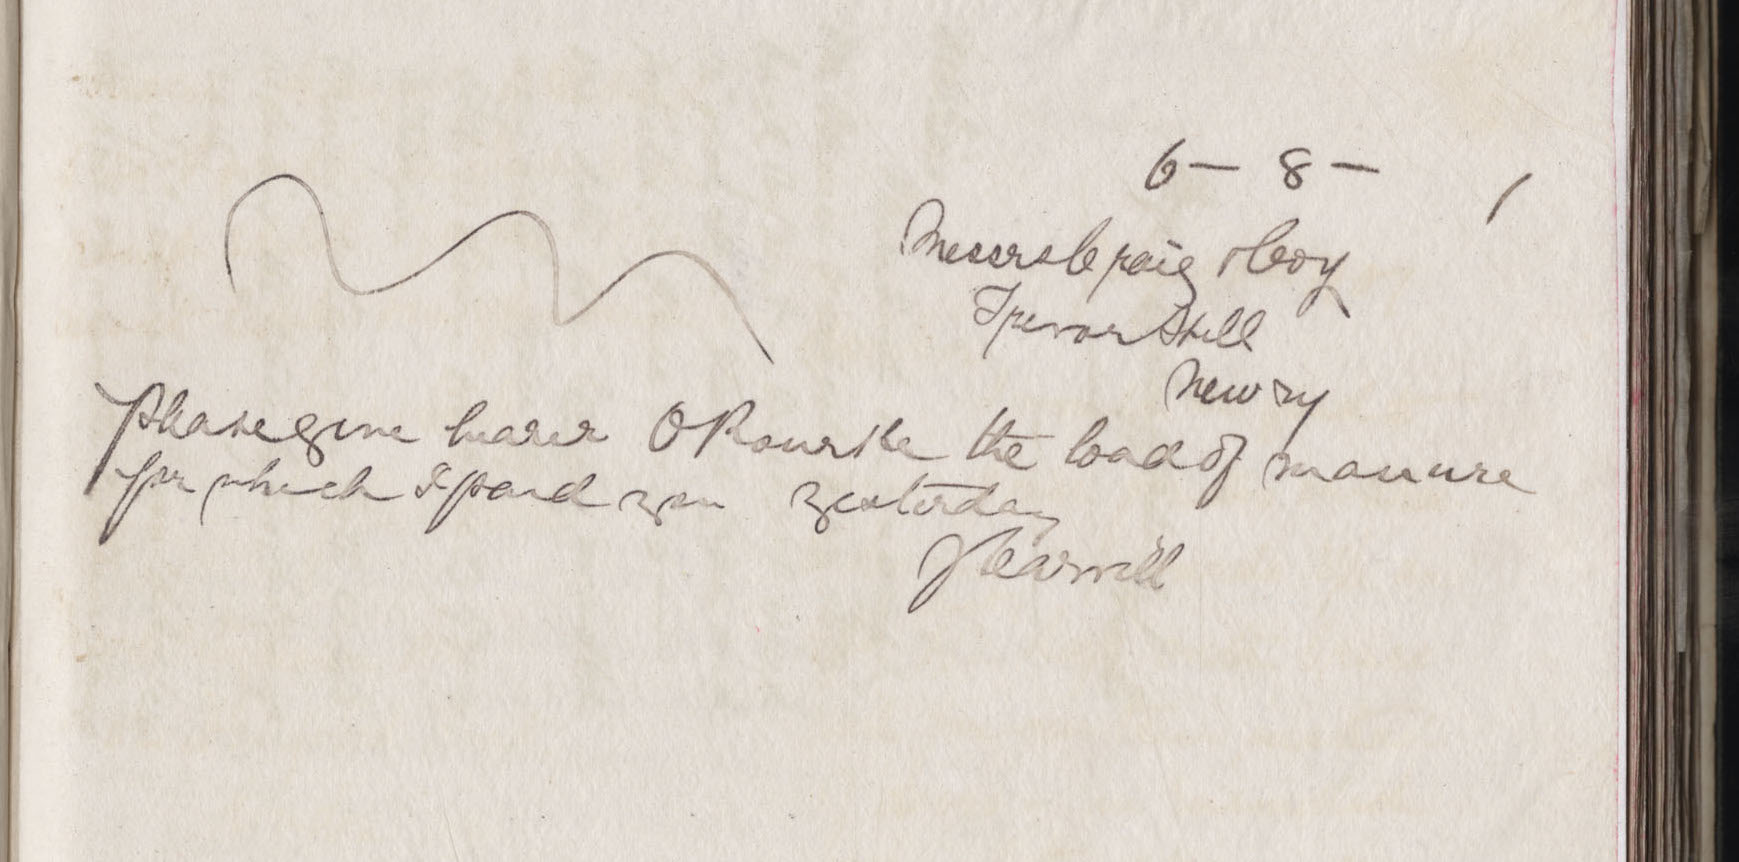 6 – 8 –
Messrs Craig & Coy
Trevor Hill
Newry
Please give bearer O Rourke the load of manure
for which I paid you yesterday